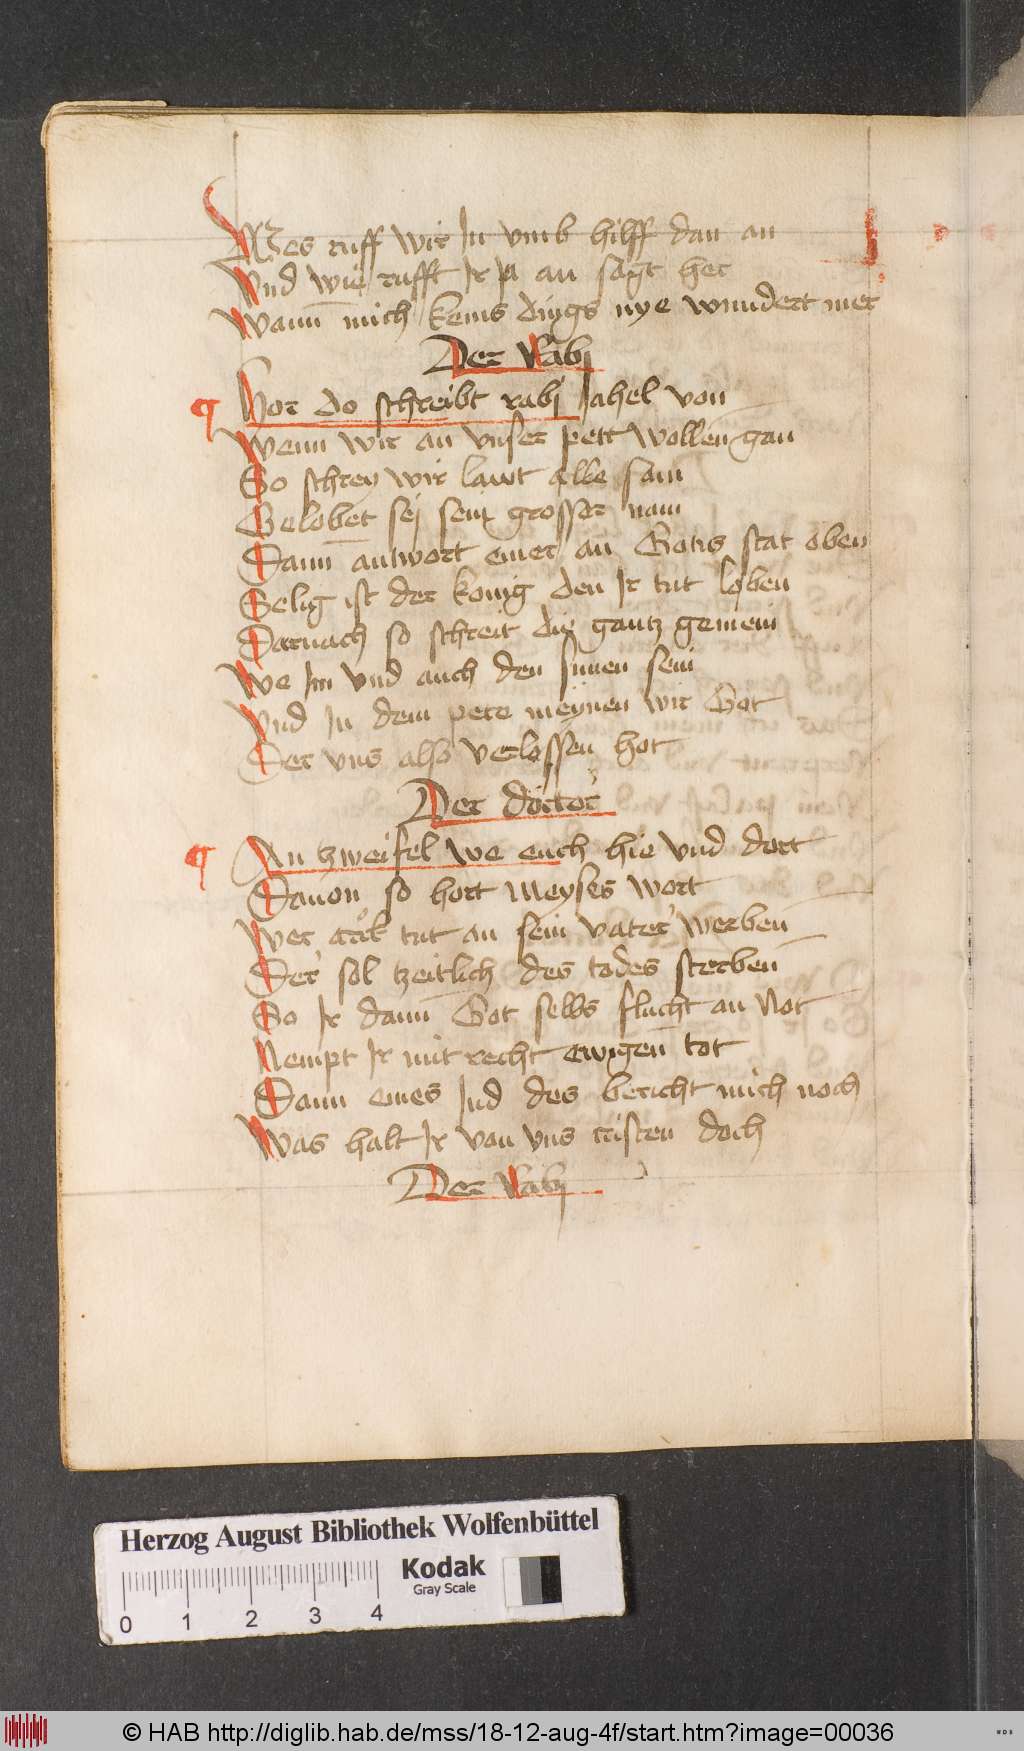 Wes ruff wir In vmb hilff dan an
Vnd wie rufft Ir In an sagt her
Wann mich keins dings nye wundert mer
Der Rabi
¶ Hor do schreibt rabi Jahel von
Wenn wir an vnser pett wollen gan
So schrey wir lawt alle sam
Gelobet sej sein grosser nam
Dann antwort einer an Gotis stat oben
Selig ist der konig den Ir tut loben
Darnach so schreit die gantz gemein
We Im vnd auch den sunen sein
Vnd In dem pete meynen wir Got
Der vns also verlossen hot
Der doctor
¶ An tzweifel we euch hie vnd dort
Dauon so hort Meyses wort
Wer arck tut an sein vater werben
Der sol tzeitlich des todes sterben
So Ir dann Got selbs flucht an Not
Nempt Ir mit recht ewigen tot
Dann eines Jud des bericht mich noch
Was halt Ir van vns cristen doch
Der Rabi
Herzog August Bibliothek Wolfenbüttel
Kodak
Gray Scale
0 1 2 3 4
© HAB http://diglib.hab.de/mss/18-12-aug-4f/start.htm?image=00036